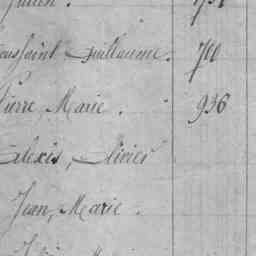 Julien.
Toussaint Guillaume. 700
Pierre, Marie. 936
Alexis, Olivier
Jean, Marie.